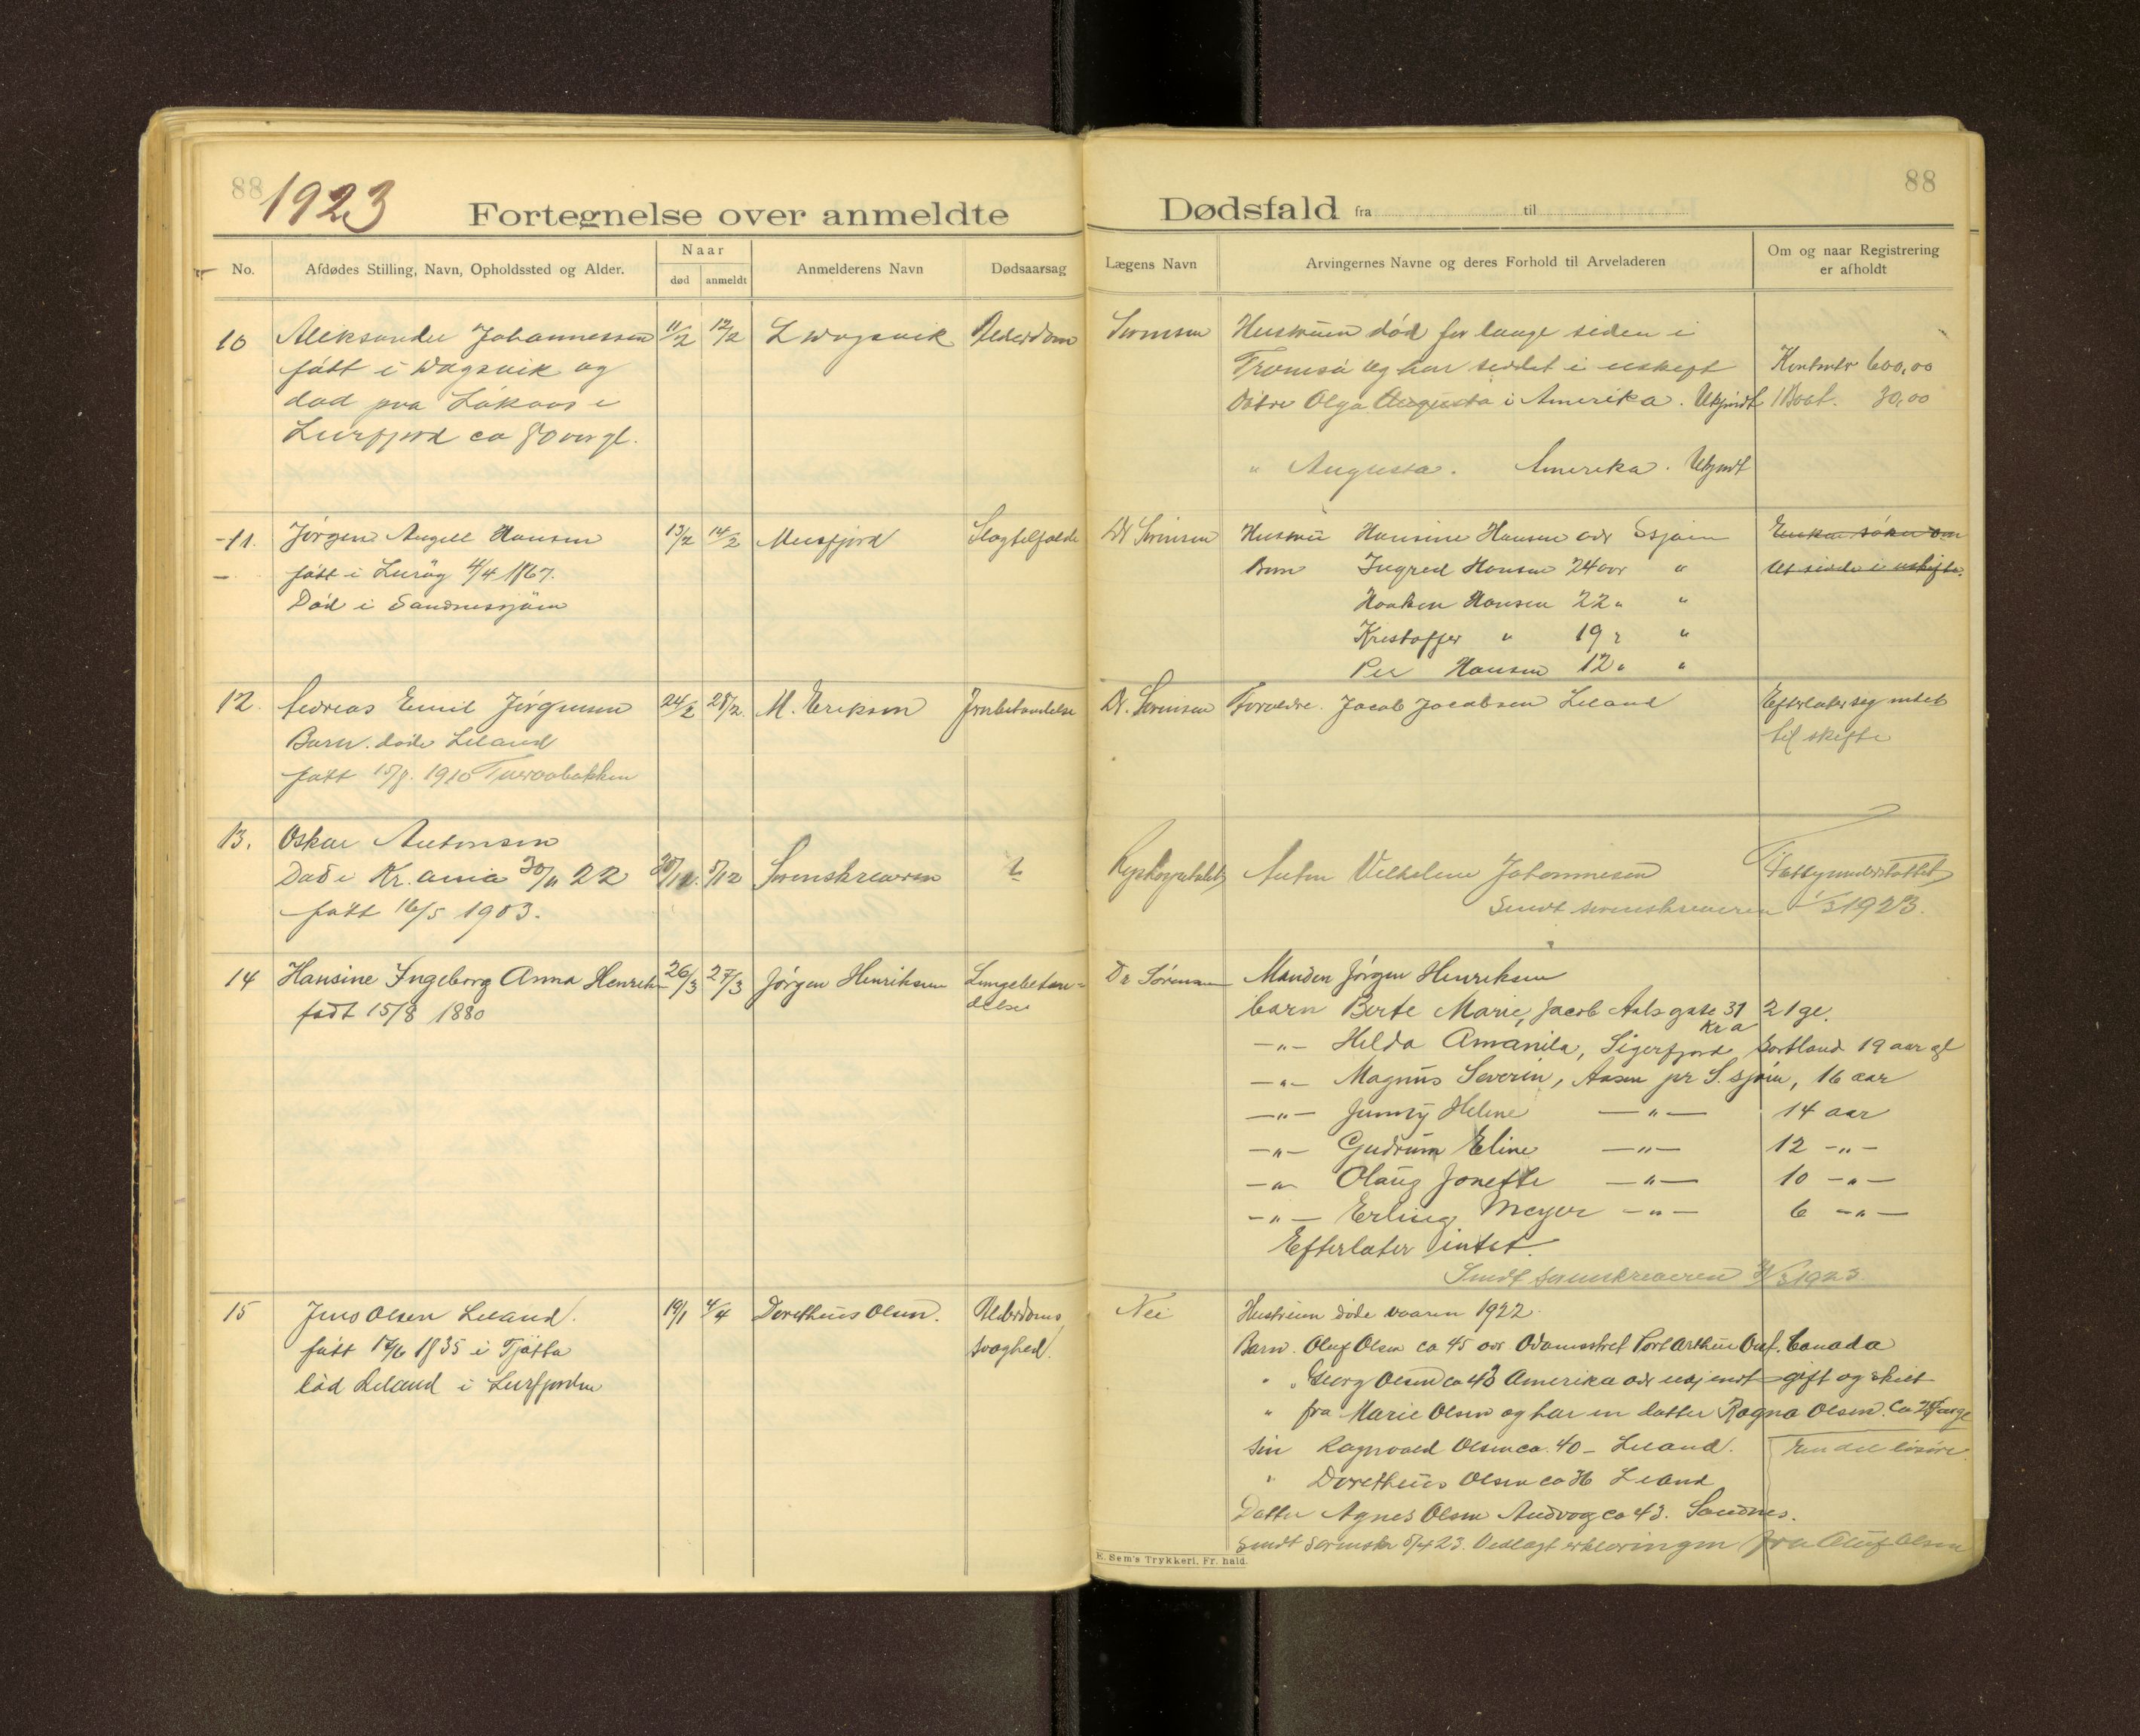 88
1923
Fortegnelse over anmeldte
Dødsfald fra til
88
No.
Afdødes Stilling, Navn, Opholdssted og Alder.
Naar
død
anmeldt
Anmelderens Navn
Dødsaarsag
Lægens Navn
Arvingernes Navne og deres Forhold til Arveladeren
Om og naar Registrering
er afholdt
10 Aleksander Johannessen 11/2 12/2 L Wogsvik Alderdom
født i Wogsvik og
død paa
Leirfjord ca 80 aar gl.
Sørensen Hustruen død for lange siden i
Tromsø og har siddet i uskift
Døtre Olga Augusta i Amerika. Ukjendt
" Augusta. Amerika. Ukjendt
Kontanter 600,00
1 Baat. 30,00
11. Jørgen Angell Hansen 13/2 14/2 Meisfjord Slagtilfælde
født i Lurøy 4/4 1867.
Død i Sandnessjøen
Dr Sørensen Hustru Hansine Hansen adr Ssjøen
Barn Ingred Hansen 24 aar "
Haaken Hansen 22 " "
Kristoffer " 19 " "
Per Hansen 12 " "
Enken søker om
at sidde i uskifte.
12. Andreas Emil Jørgensen 24/2 28/2. M. Erikson
Barn. døde Leland
født 15/8. 1910
Dr. Sørensen Forældre. Jacob Jacobsen Leland
Efterlater sig intet
til skifte
13. Oskar Antonsen
Død i Kr.ania 30/11 22 5/12 Sorenskriveren
født 16/5 1903.
Rigshospitalet Anton Vilhelm Johannesen
Fattigunderstøttet
Sendt sorenskriveren 1/3 1923.
14 Hansine Ingeborg Anna Henriks 26/3 27/3 Jørgen Henriksen Lungebetæn-
delse
født 15/8 1880
Dr Sørensen Manden Jørgen Henriksen
barn Berte Marie, Jacob Aals gate 31 21 gl.
Kr a
-"- Helda Amanda, Sigerfjord Sortland 19 aar gl
-"- Magnus Severin, Aasen pr S.sjøen, 16 aar
-"- Jenny Helene -"- 14 aar
-"- Gudrun Eline -"- 12 -"-
-"- Olaug Jonette -"- 10 -"-
-"- Erling Meyer -"- 6 -"-
Efterlater intet.
Sendt sorenskriveren 1923.
15 Jens Olsen Leland. 19/1 4/4 Dorétheus Olsen. Alderdoms
svaghed.
født 1835 i Tjøtta
død Leland i Leirfjorden
Nei Hustruen døde vaaren 1922.
Barn. Oluf Olsen ca 45 adr Port Arthur Ont. Canada
" Georg Olsen ca 43 Amerika adr ukjendt gift og skilt
" fra Marie Olsen og har en datter Ragna Olsen.
Søn Ragnvald Olsen ca. 40 - Leland. En del løsøre
" Doretheus Olsen ca Leland
Datter Agnes Olsen ca 43. Sandnes.
Sendt sorenskr 5/4 23. Vedlagt erklæringen fra Oluf Olsen
E. Sem's Trykkeri, Fr.hald.